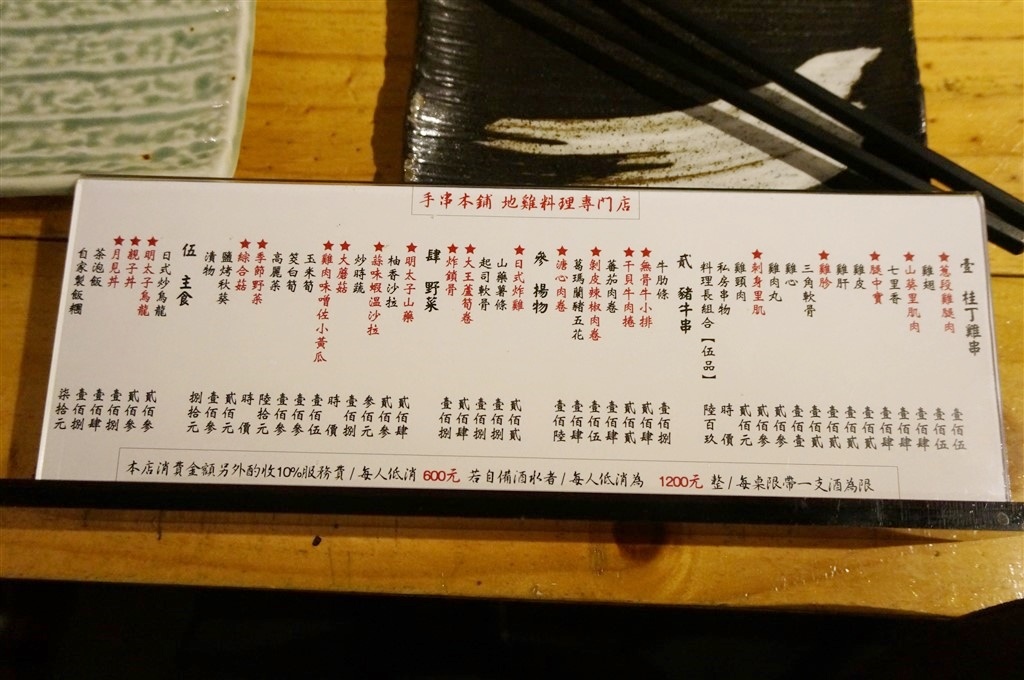 手串本鋪 地雞料理專門店
壹 桂丁雞串
★蔥段雞腿肉 壹佰伍
雞翅 壹佰伍
★山葵里肌肉 壹佰肆
七里香 壹佰肆
★腿中寶 壹佰肆
雞皮 壹佰貳
雞肝 壹佰貳
★雞胗 壹佰貳
三角軟骨 壹佰貳
雞心 壹佰壹
雞肉丸 貳佰參
★刺身里肌 貳佰參
雞頸肉 貳佰元
私房串物 時價
料理長組合【伍品】 陸百玖
貳 豬牛串
牛肋條 壹佰捌
★無骨牛小排 貳佰肆
★干貝牛肉捲 貳佰貳
蕃茄肉卷 壹佰肆
★剝皮辣椒肉卷 壹佰伍
葛瑪蘭豬五花 壹佰肆
★溏心肉卷 壹佰陸
參 揚物
★日式炸雞 貳佰貳
山藥薯條 壹佰捌
起司軟骨 壹佰捌
★大王蘆筍卷 貳佰肆
★炸鎖骨 壹佰捌
肆 野菜
★明太子山藥 貳佰肆
柚香沙拉 貳佰參
★蒜味蝦溫沙拉 參佰元
炒時蔬 壹佰捌
★大蘑菇 時價
★雞肉味噌佐小黃瓜 壹佰伍
玉米筍 壹佰參
筊白筍 壹佰參
高麗菜 陸拾元
★季節野菜 時價
★綜合菇 貳佰元
鹽烤秋葵 壹佰參
漬物 捌拾元
伍 主食
日式炒烏龍 貳佰參
★明太子烏龍 貳佰參
★親子丼 壹佰捌
★月見丼 壹佰肆
茶泡飯 壹佰捌
自家製飯糰 柒拾元
本店消費金額另外酌收10%服務費/每人低消 600元 若自備酒水者/每人低消為 1200元 整/每桌限帶一支酒為限